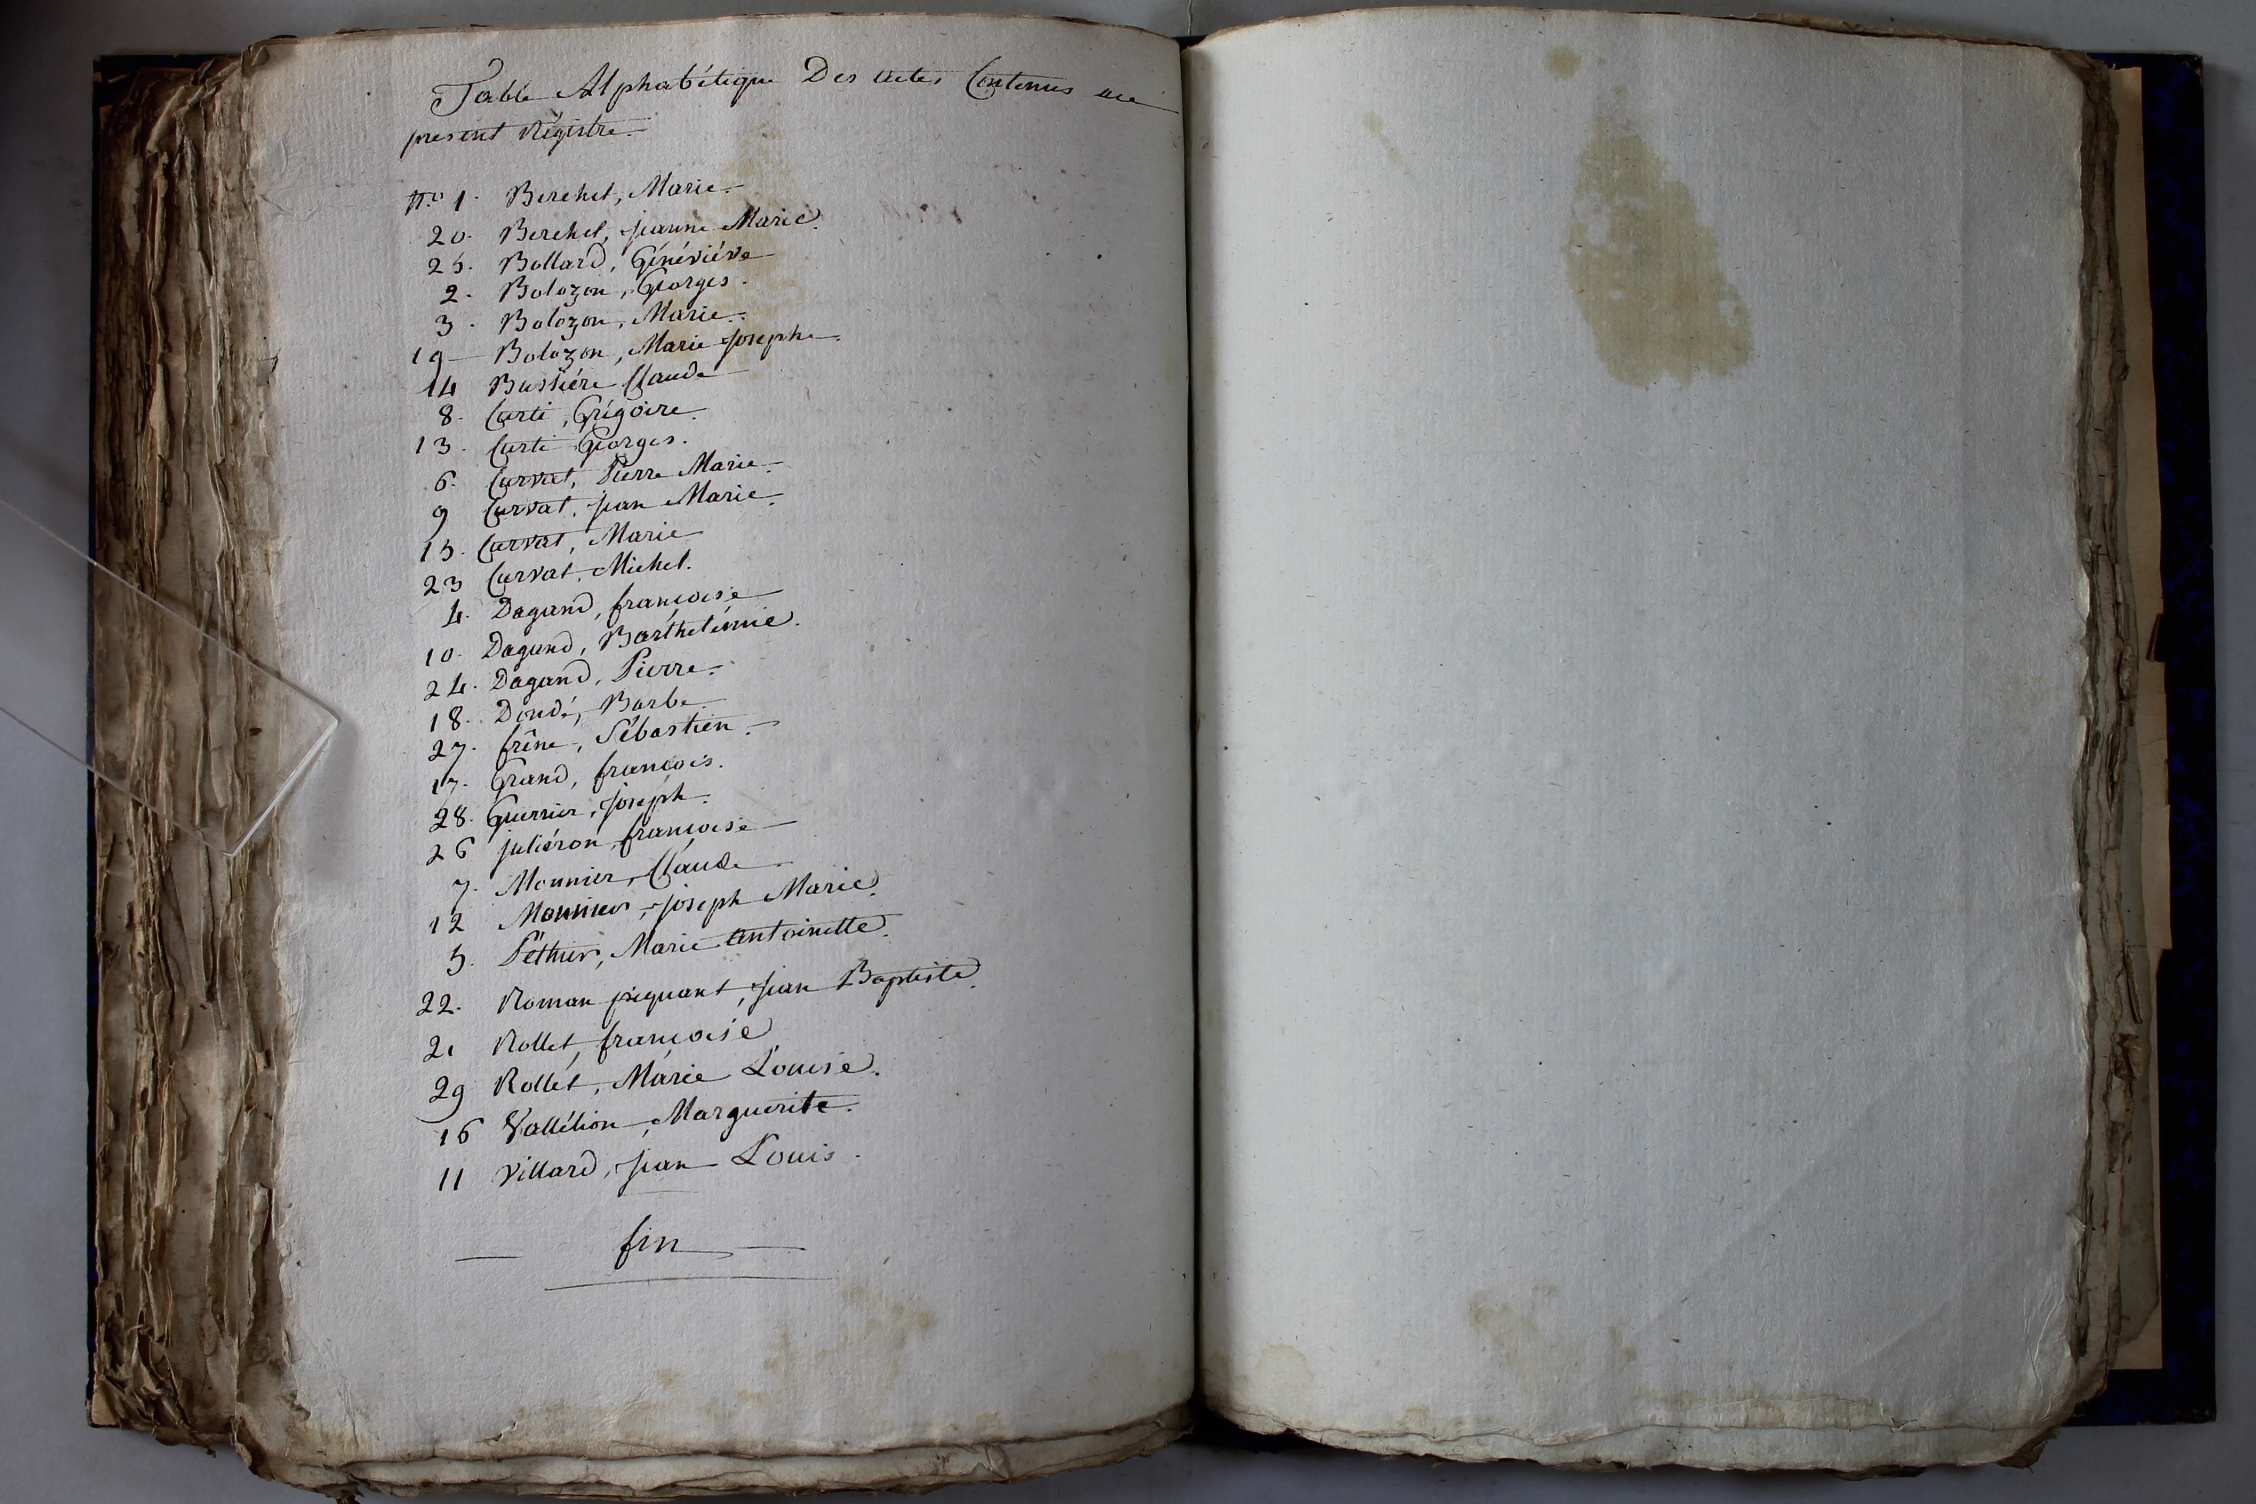 Table Alphabétique Des actes Contenus au
présent Régistre.
N.o 1. Berchet, Marie.
20. Berchet, jeanne Marie.
25. Bollard, Généviéve
2. Bolozon, Georges.
3. Bolozon, Marie.
19 Bolozon, Marie josephe.
14 Bussiére Claude
8. Curti, Grégoire.
13. Curti Georges.
6. Curvat, Pierre Marie.
9 Curvat, jean Marie.
15. Curvat, Marie
23 Curvat, Michel.
4. Dagand, françoise
10. Dagand, Barthelémie.
24. Dagand, Pierre.
18. Doudé, Barbe.
27. frêne, Sébastien.
17. Grand, françois.
28. Guerrier, joseph.
26 juliéron, françoise
7. Monnier, Claude
12 Monnier, joseph Marie.
5. Péthier, Marie antoinette.
22. Roman piquant, jean Baptiste.
21 Rollet, françoise
29 Rollet, Marie Louise.
16 Vallélion, Marguerite.
11 Villard, jean Louis.
fin